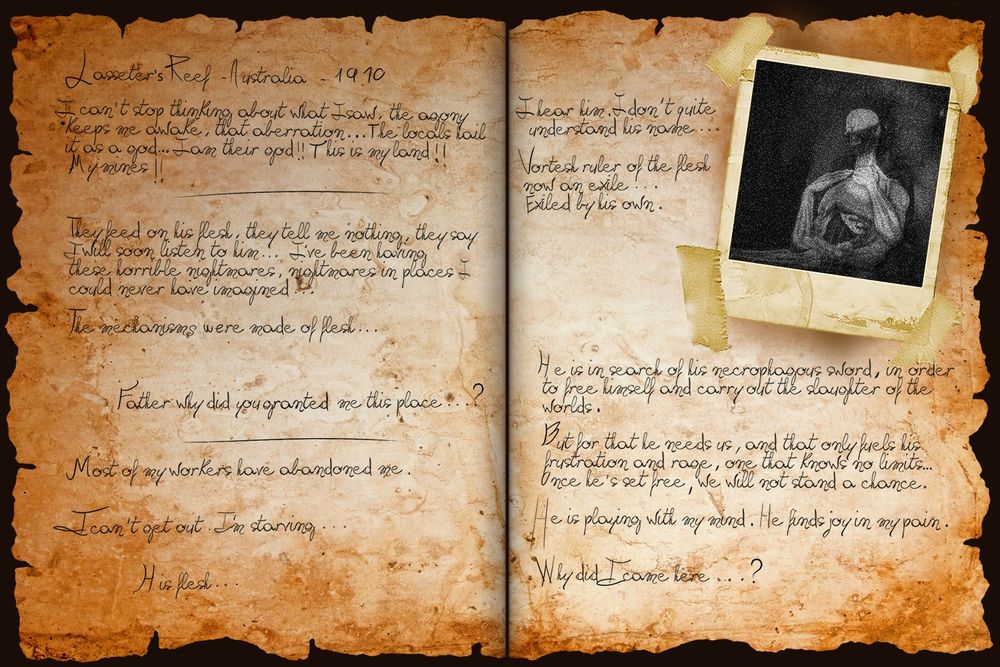 Lasseter's Reef - Australia - 1910
I can't stop thinking about what I saw, the agony
keeps me awake, that aberration... The locals hail
it as a god... I am their god!! This is my land!!
My mines!!
They feed on his flesh, they tell me nothing, they say
I will soon listen to him... I've been having
these horrible nightmares, nightmares in places I
could never have imagined...
The mechanisms were made of flesh...
Father why did you granted me this place....?
Most of my workers have abandoned me.
I can't get out. I'm starving....
His flesh...
I hear him. I don't quite
understand his name....
Vortesh ruler of the flesh
now an exile....
Exiled by his own.
He is in search of his necrophagous sword, in order
to free himself and carry out the slaughter of the
worlds.
But for that he needs us, and that only fuels his
frustration and rage, one that knows no limits...
Once he's set free, we will not stand a chance.
He is playing with my mind. He finds joy in my pain.
Why did I came here....?